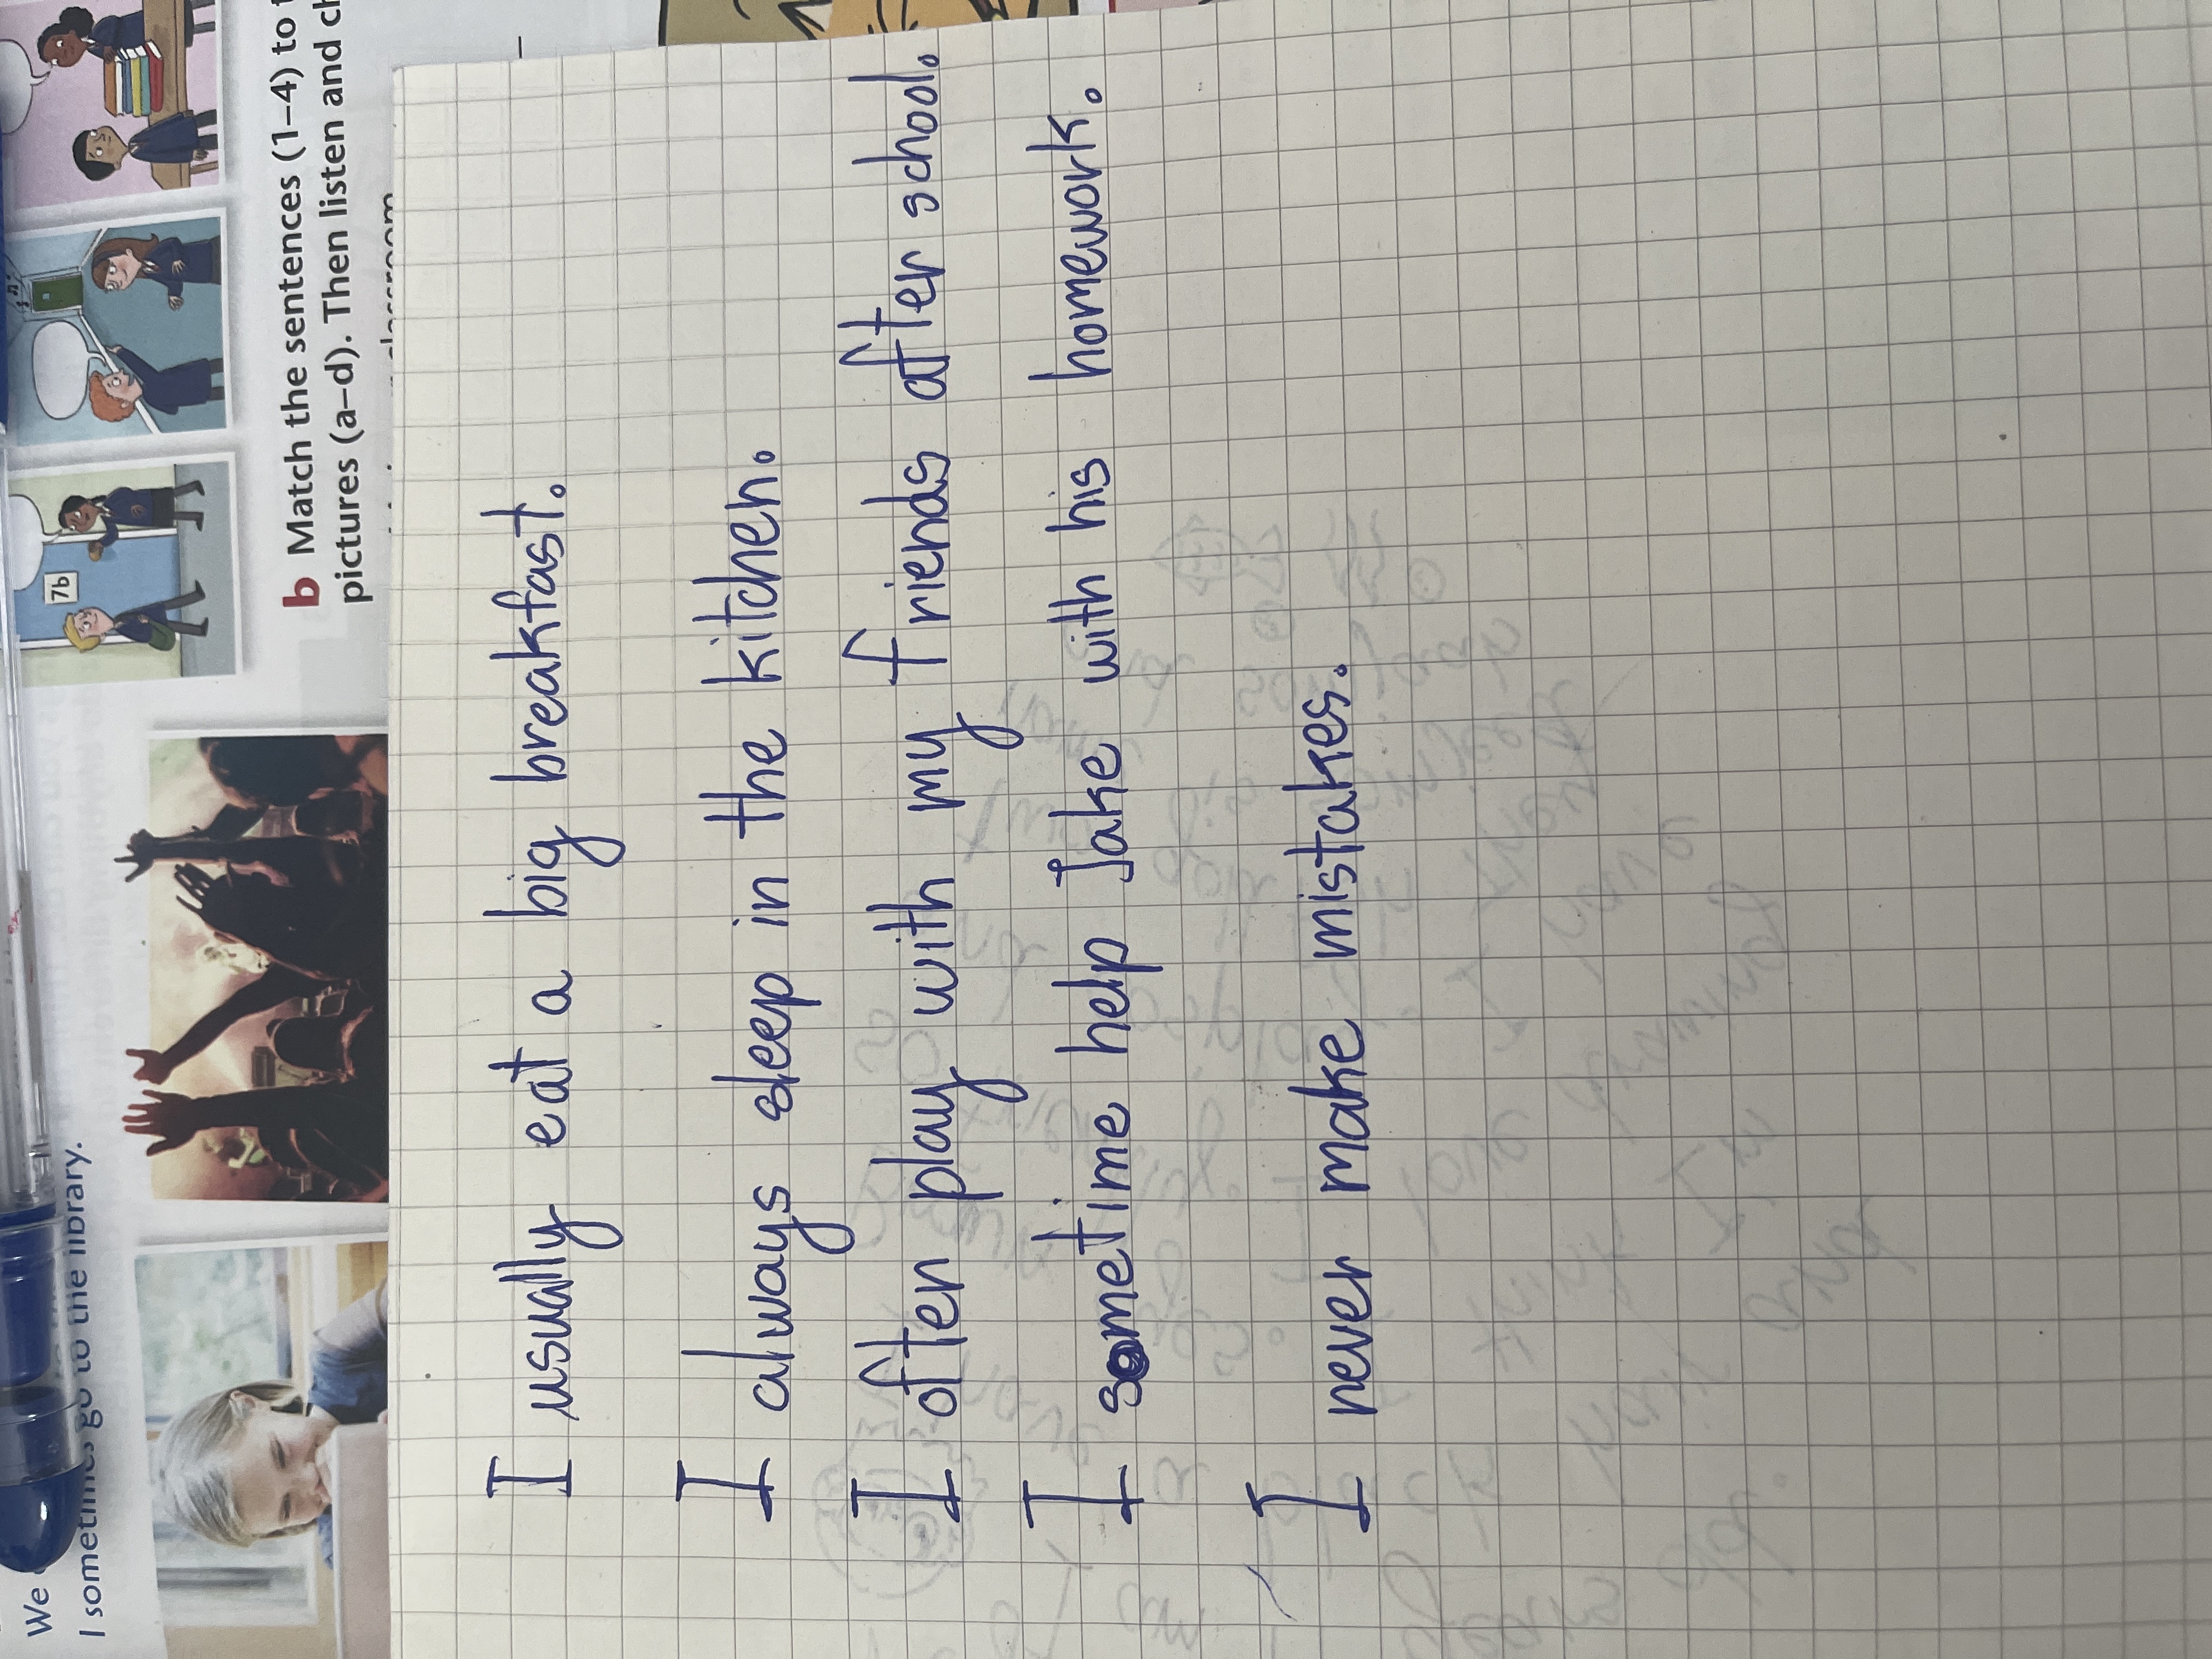 We
I sometimes go to the library.
7b
b Match the sentences (1–4) to
pictures (a–d). Then listen and
classroom
I usually eat a big breakfast.
I always sleep in the kitchen.
I often play with my friends after school.
I sometime help Jake with his homework.
I never make mistakes.